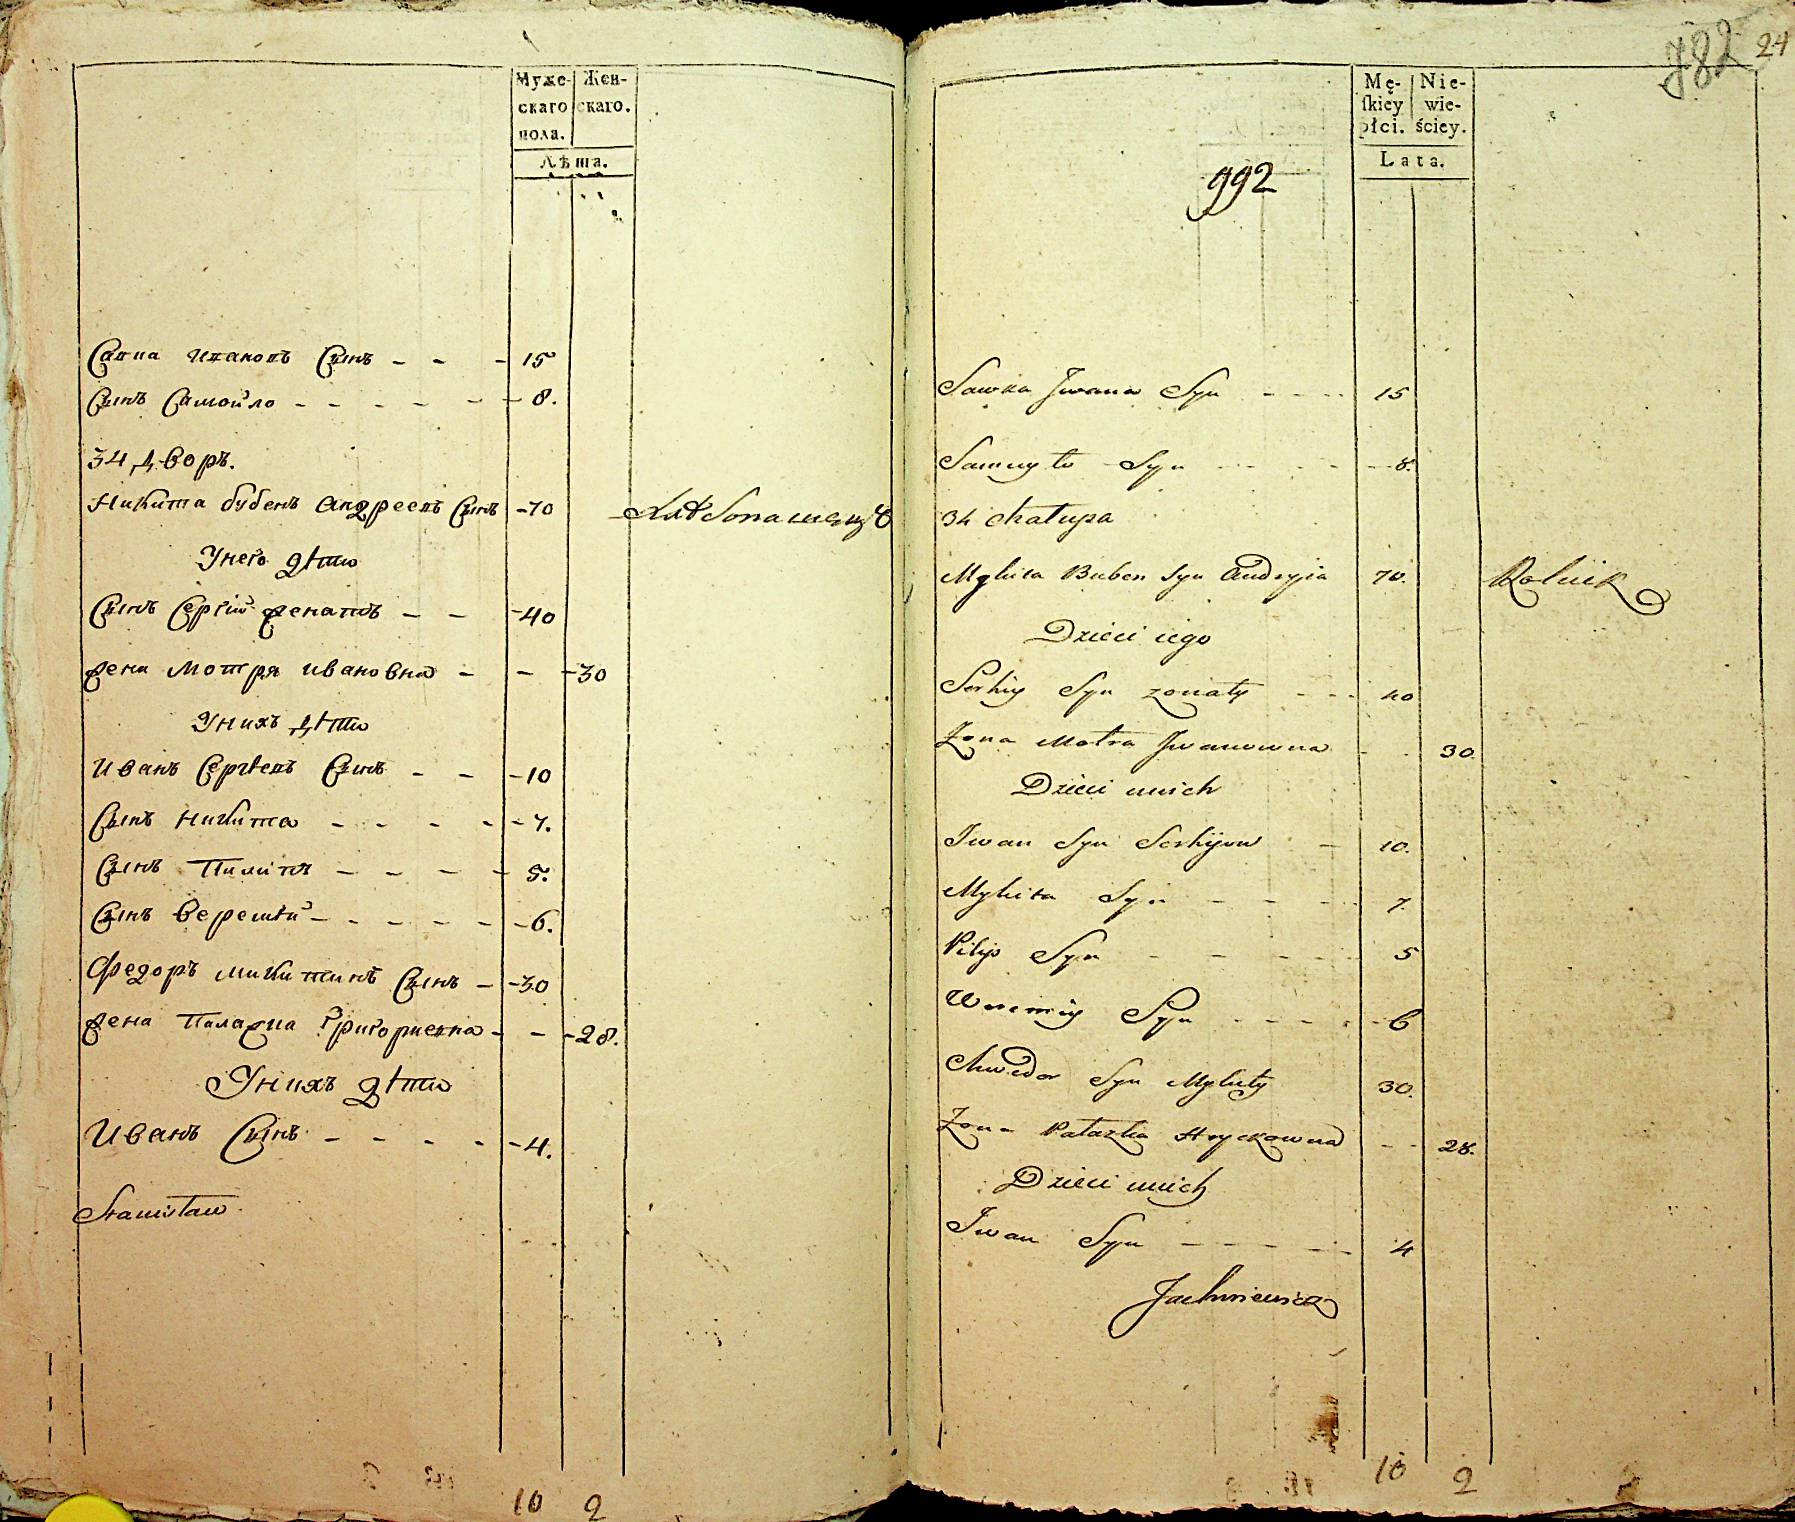 Муже- Жен-
скаго скаго.
пола.
Лѣта.
Савка Ивановъ Сынъ - - - 15
Сынъ Самойло - - - - - - 8.
34 Дворъ.
Никита бубенъ Андреевъ Сынъ - 70 Хлѣбопашецъ
Унего дѣти
Сынъ Сергій женатъ - - - 40
жена Мотря ивановна - - - 30
Унихъ дѣти
Иванъ Сергѣевъ Сынъ - - - 10
Сынъ Никита - - - - - 7.
Сынъ Пилипъ - - - - 5.
Сынъ Веремѣй - - - - - - 6.
Федоръ Микитинъ Сынъ - - 30
жена Палажка Григориевна - - - 28.
Унихъ дѣти
Иванъ Сынъ - - - - - 4.
Stanisław
10 2
782 24
Mę- Nie-
ſkiey wie-
płci. ściey.
Lata.
992
Sawka Jwana Syn - - - - 15
Samuyło Syn - - - - - 8.
34 Chałupa
Mykita Buben Syn Andryia 70. Rolnik
Dzieci iego
Serhiy Syn zonaty - - - 40
Zona Motra Jwanowna - - 30.
Dzieci unich
Iwan Syn Serhijow - 10.
Mykita Syn - - - - 7.
Pilip Syn - - - - - 5
Weremiy Syn - - - - - 6
Chwedor Syn Mykity 30.
Zona Pałazka Hryckowna - - 28.
Dzieci unich
Iwan Syn - - - - - 4
Jachniewicz
10 2